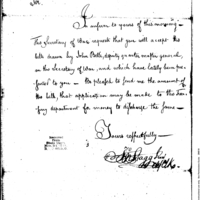 Sir.
In answer to yours of this morning
The Secretary of War requests that you will accept the
bills drawn by John Belli, deputy quarter master general,
on the Secretary of War, and which have lately been pre-
sented to you — Be pleased to send me the amount of
the bills, that application may be made to the Trea-
sury department for money to discharge the same
Yours respectfully